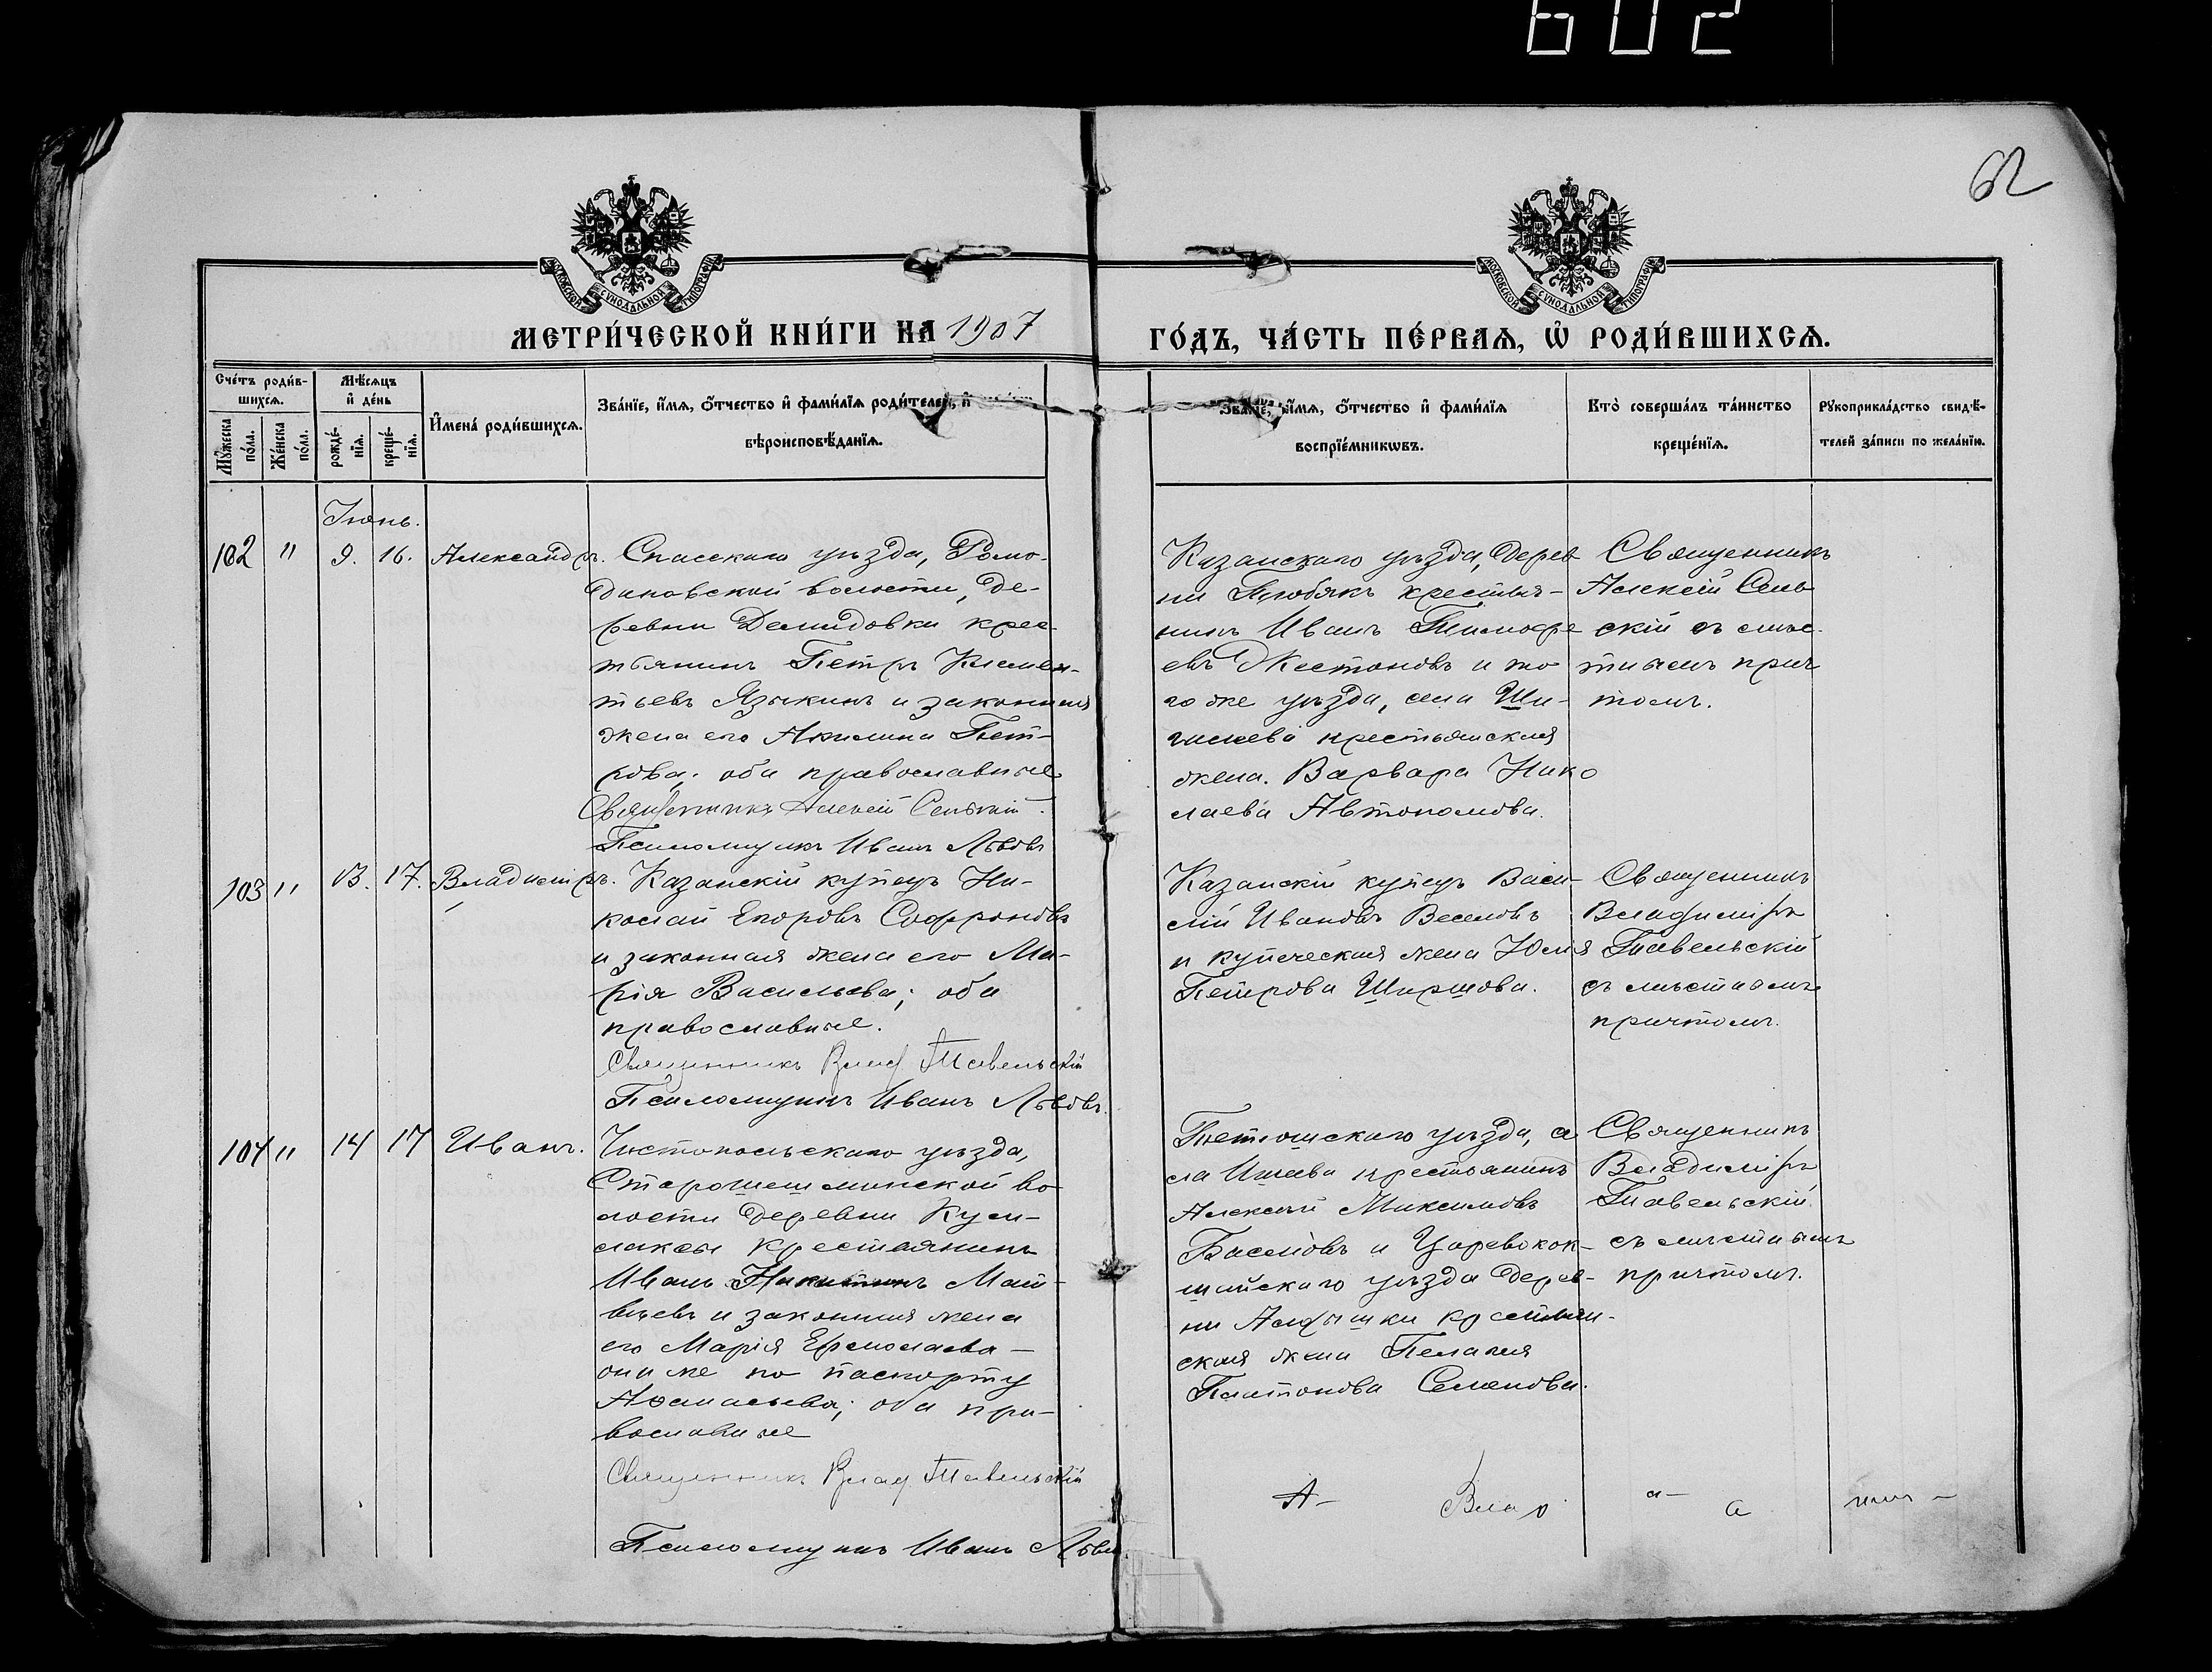 602
62
МОСКОВСКОЙ СУНОДАЛЬНОЙ ТИПОГРАФІИ
МОСКОВСКОЙ СУНОДАЛЬНОЙ ТИПОГРАФІИ
МЕТРИ́ЧЕСКОЙ КНИ́ГИ НА 1907
ГО́ДЪ, ЧА́СТЬ ПЕ́РВАѦ, Ѡ҆ РОДИ́ВШИХСѦ.
Сче́тъ роди́в-
шихсѧ.
Мꙋ́жеска по́ла.
Же́нска по́ла.
Мѣ́сѧцъ
и҆ де́нь
рожде́-
нїѧ.
креще́-
нїѧ.
И҆мена̀ роди́вшихсѧ.
Зва́нїе, и҆́мѧ, ѻ҆́тчество и҆ фами́лїѧ роди́телей, и҆
вѣроисповѣ́данїѧ.
Зва́нїе, и҆́мѧ, ѻ҆́тчество и҆ фами́лїѧ
воспрїе́мникѡвъ.
Кто̀ соверша́лъ та́инство
креще́нїѧ.
Рꙋкоприкла́дство свидѣ́-
телей за́писи по жела́нїю.
Іюнь.
102 " 9. 16. Александръ.
Спасскаго уѣзда, Ромо-
дановской волости, де-
ревни Демидовки крес
тьянинъ Петръ Климен-
тьевъ Языкинъ и законная
жена его Акилина Пет-
рова; оба православные
Священникъ Алексій Сельскій.
Псаломщикъ Иванъ Львовъ
Казанскаго уѣзда, дерев
ни крестья-
нинъ Иванъ Тимофе
евъ Жестановъ и то
го же уѣзда, села Ши-
гилеева крестьянская
жена. Варвара Нико
лаева Автономова.
Священникъ
Алексій Сель
скій съ мѣс-
тнымъ прич
томъ.
103 " 13. 17. Владиміръ.
Казанскій купецъ Ни-
колай Егоровъ Софроновъ
и законная жена его Ма-
рія Васильева; оба
православные.
Священникъ Влад Тавельскій
Псаломщикъ Иванъ Львовъ.
Казанскій купецъ Васи-
лій Ивановъ Веселовъ
и купеческая жена Юлія
Петрова Ширшова.
Священникъ
Владиміръ
Тавельскій
съ мѣстнымъ
причтомъ.
104 " 14 17 Иванъ.
Чистопольскаго уѣзда,
Старошешминской во
лости деревни Кут-
лаксы крестьянинъ
Иванъ Никитинъ Мат-
вѣевъ и законная жена
его Марія Ермолаева —
она же по паспорту
Афанасьева; оба пра-
вославные
Священникъ Влад. Тавельскій
Псаломщикъ Иванъ Львов
Тетюшскаго уѣзда, се
ла крестьянинъ
Алексѣй Максимовъ
и Царевокок-
шайскаго уѣзда дерев-
ни крестьян-
ская жена Пелагия
Платонова Семенова.
Священникъ
Владиміръ
Тавельскій
съ мѣстнымъ
причтомъ.